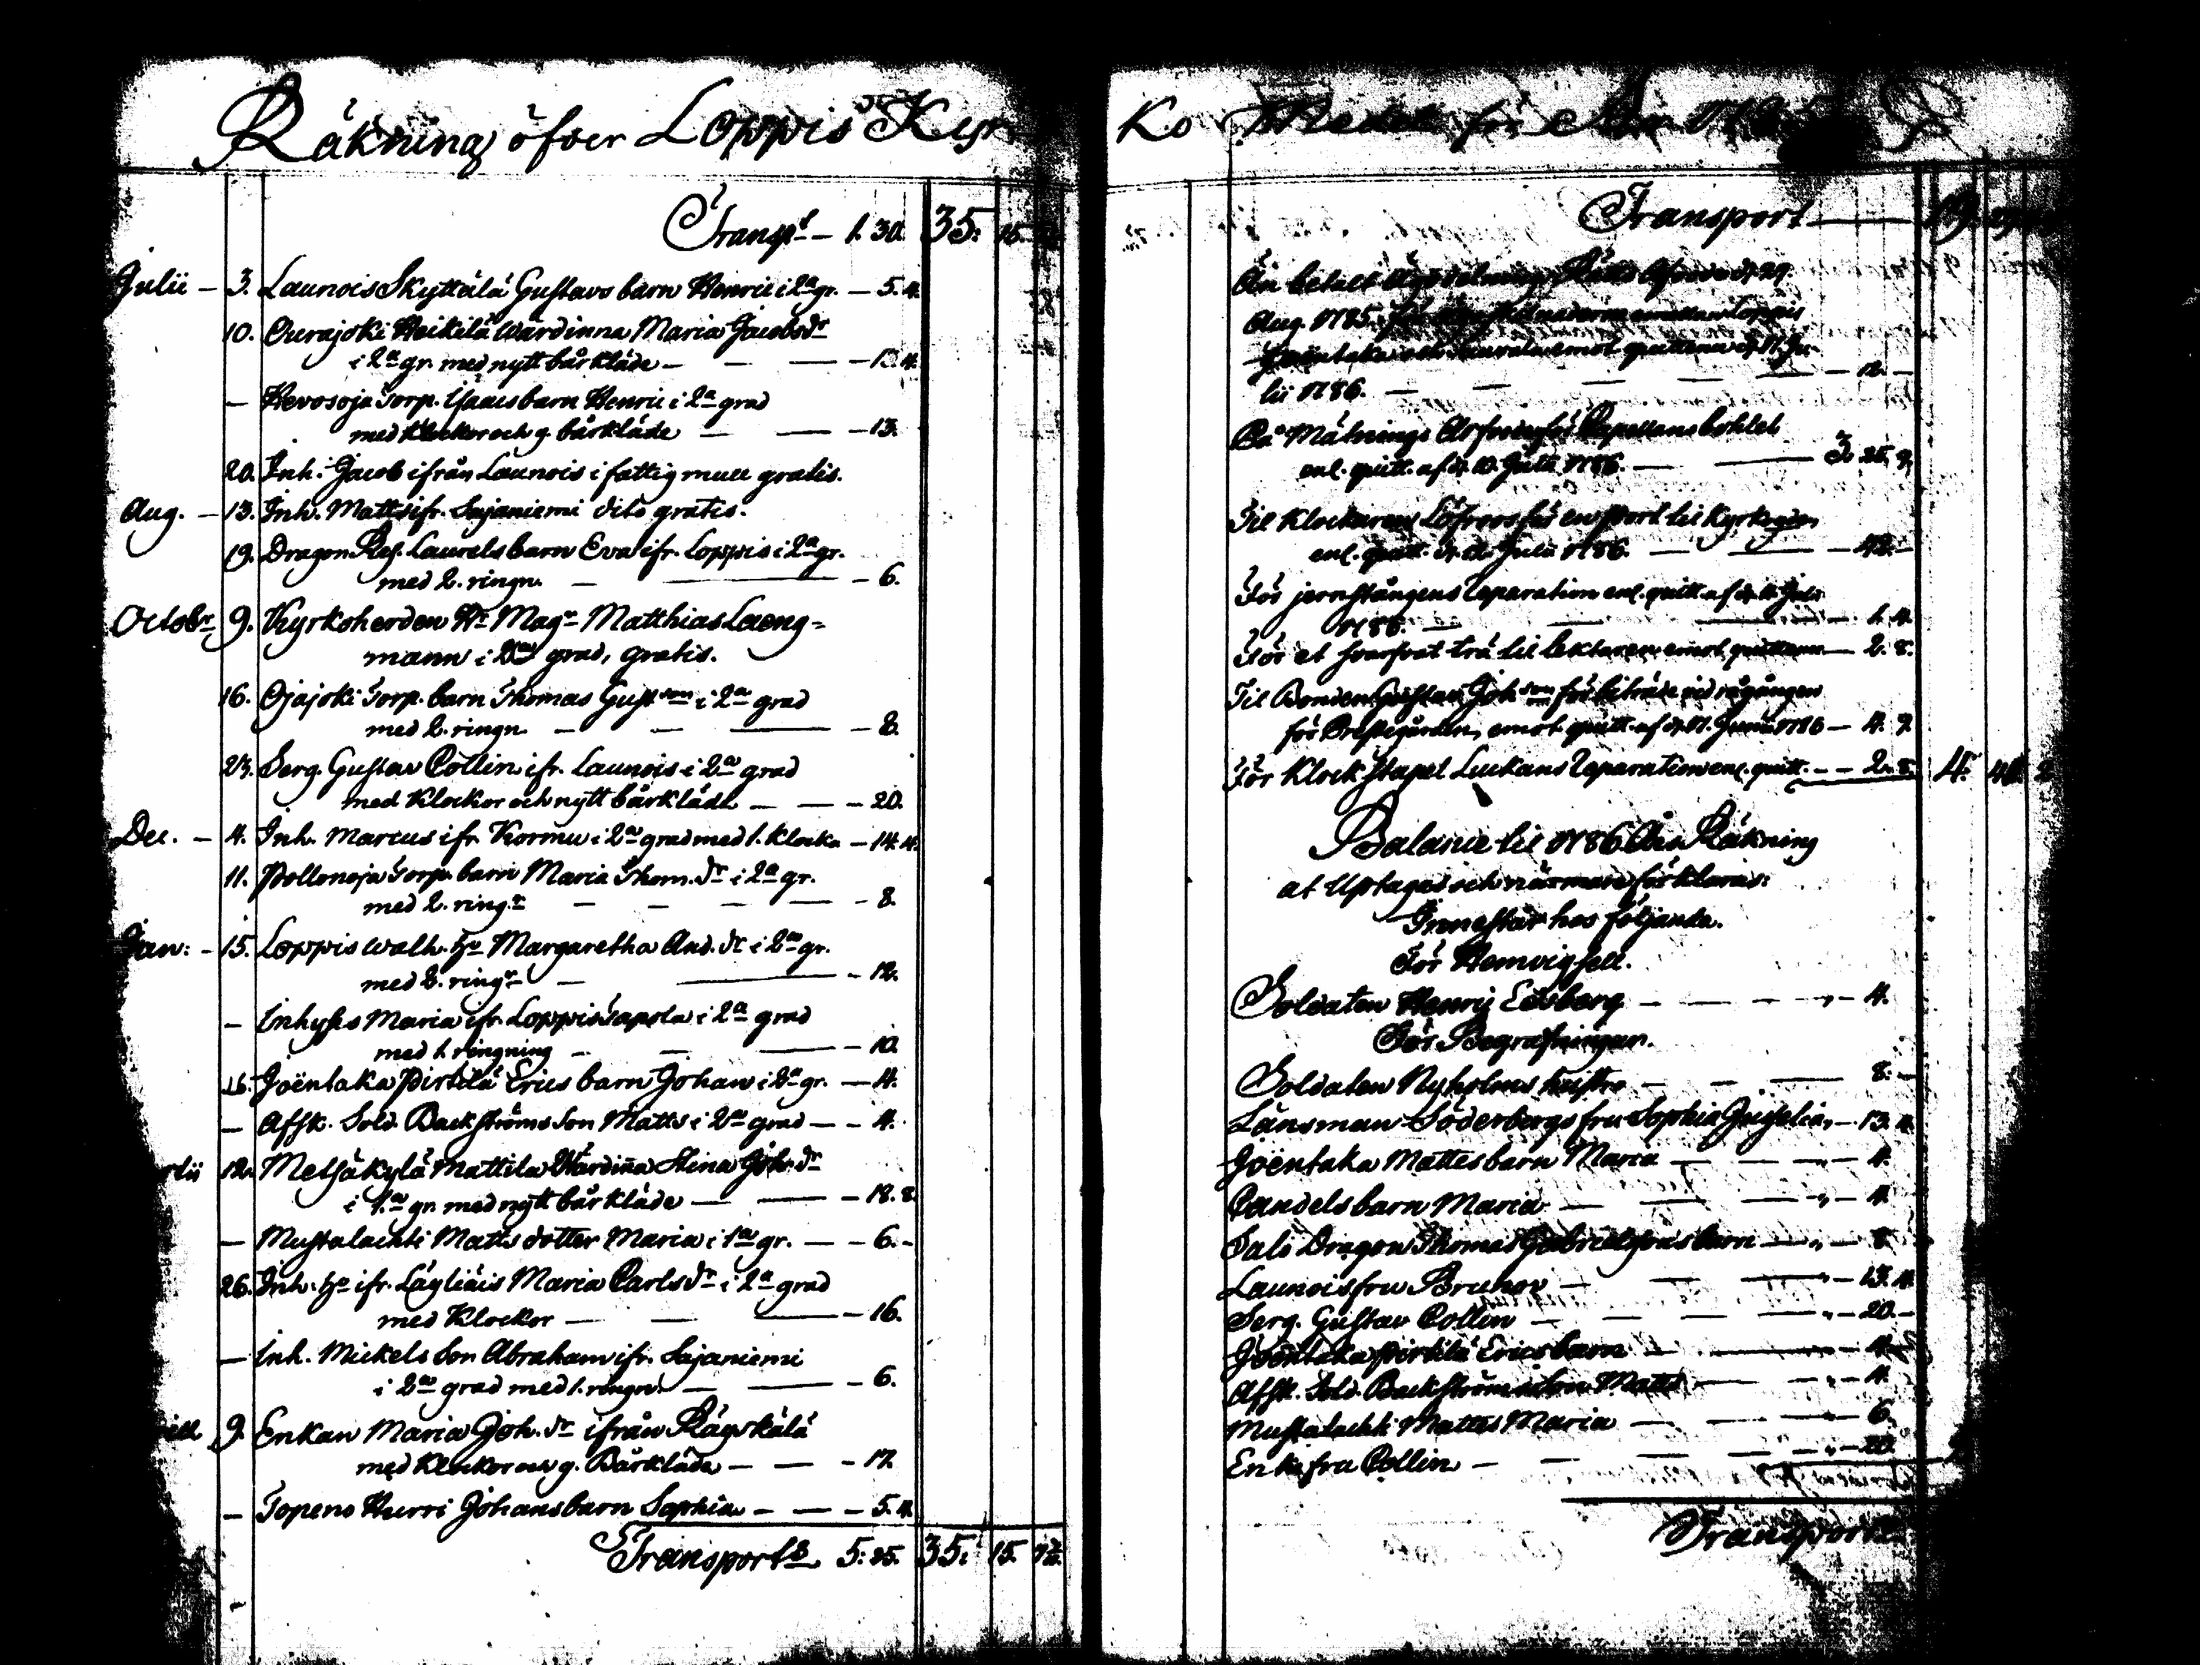 Räkning öfver Loppis Kyr
Transpt — 1. 30. 35. 15.
Julii — 3. Launois Skyttälä Gustavs barn Henric i 2a gr. — 5. 4.
10. Ourajoki Heikilä Wärdinna Maria Jacobsdr
i 2a gr. med nytt bårkläde — — — 13. 4.
— Hevosoja Torp. Isaacs barn Henric i 2a grad
med Klockor och g. bårkläde — — — 13.
20. Inh. Jacob ifrån Launois i fattig mull gratis.
Aug. — 13. Inh. Matts ifr. Sajaniemi dito gratis.
19. Dragon Laurels barn Eva ifr. Loppis i 2a gr.
med 2. ringn. — — — 6.
Octobr 9. Kyrkoherden Hr Magr Matthias Laeng=
mann i grad, gratis.
16. Ojajoki Torp. barn Thomas Gustson i 2a grad
med 2. ringn — — — 8.
23. Serg. Gustav Collin ifr. Launois i 2a grad
med Klockor och nytt bårkläde — — — 20.
Dec. — 4. Inh. Marcus ifr. Kormu i 2a grad med 1. Klocka — 14. 4.
11. Pollonoja Torp. barn Maria Thom. dr i 2a gr.
med 2. ringr — — — — 8.
Jan: — 15. Loppis walh. Ho Margaretha And. dr i 2a gr.
med 2. ringr — — — 12.
— Inhyses Maria ifr. Loppis Sapola i 2a grad
med 1. ringning — — — 10.
16. Joëntaka Pirttilä Erics barn Johan i 2a gr. — 4.
— Afsk. Sold. Backströms Son Matts i 2a grad — — 4.
rtii 12. Metsäkylä Mattila Wärdinna Stina Joh. dr
i 1a gr. med nytt bårkläde — — — 18. 8.
— Mustalachti Matts dotter Maria i 1a gr. — — 6. -
26. Inh. Ho ifr. Lägliäis Maria Carlsdr i 2a grad
med Klockor — — — 16.
— Inh. Mickels Son Abraham ifr. Sajaniemi
i 2a grad med 1. ringn. — — — 6.
9. Enkan Maria Joh. dr ifrån Räyskälä
med Klockor och g. Bårkläde — — — 17.
— Topeno Hurri Johans barn Sophia — — — 5. 4.
Transport 5: 25. 35. 15.
Ko Medel för År
Transport — 19.
Än betalt Ägodelnings Rätts
Aug. 1785. Loppis
Joëntaka och emot quittence d. 11 Ju-
lii 1786. — — — — 12. —
På Målnings Arfvode för Capellans bohlet
enl. quitt. af d. Julii 1786. — — 3. 25. 9.
Til Klockaren Löfroos för en port til Kyrkogån
enl. quitt. d. 12. Julii 1786. — — —
För jernstångens reparation enl. quitt. af d. 11. Julii
1786. — — — 1. 4.
För at svarfvat trä til lektaren emot quittence — 2. 8.
Til Bonden Gustav Johson för biträde vid rågången
för Prestegården, emot quitt. af d. 11. Junii 1786 — 4. 9.
För Klockstapel Luckans reparation enl. quitt. — — 2. 8. 4.
Balance til 1786 Års Räkning
at Uptagas och närmare förklaras:
Innestår hos följande.
För Hemvigsell.
Soldaten Henric Edsberg — — — 4.
För Begrafningar.
Soldaten Nyholms hustro — — — 8. —
Länsman Söderbergs fru Sophia — 13. 4.
Joëntaka Matts barn Maria — — — 4.
Candels barn Maria — — — 4.
Salo Dragon Thomas Gabrielssons barn — — 8
Launois fru Bruhov — — — 13. 4.
Serg. Gustav Collin — — — 20. —
Joëntaka Pirttilä Erics barn — — — 4.
Afsk. Sold. Backströms Son Matts — — — 4.
Mustalachti Mattes Maria — — — 6.
Enkefru Collin — — — 20.
Transport